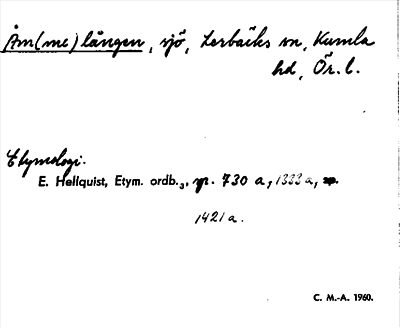 Åm(me)lången, sjö, Lerbäcks sn, Kumla
hd, Ör. l.
Etymologi.
E. Hellquist, Etym. ordb.₃, sp. 730 a, 1333 a,
1421 a.
C. M.-A. 1960.